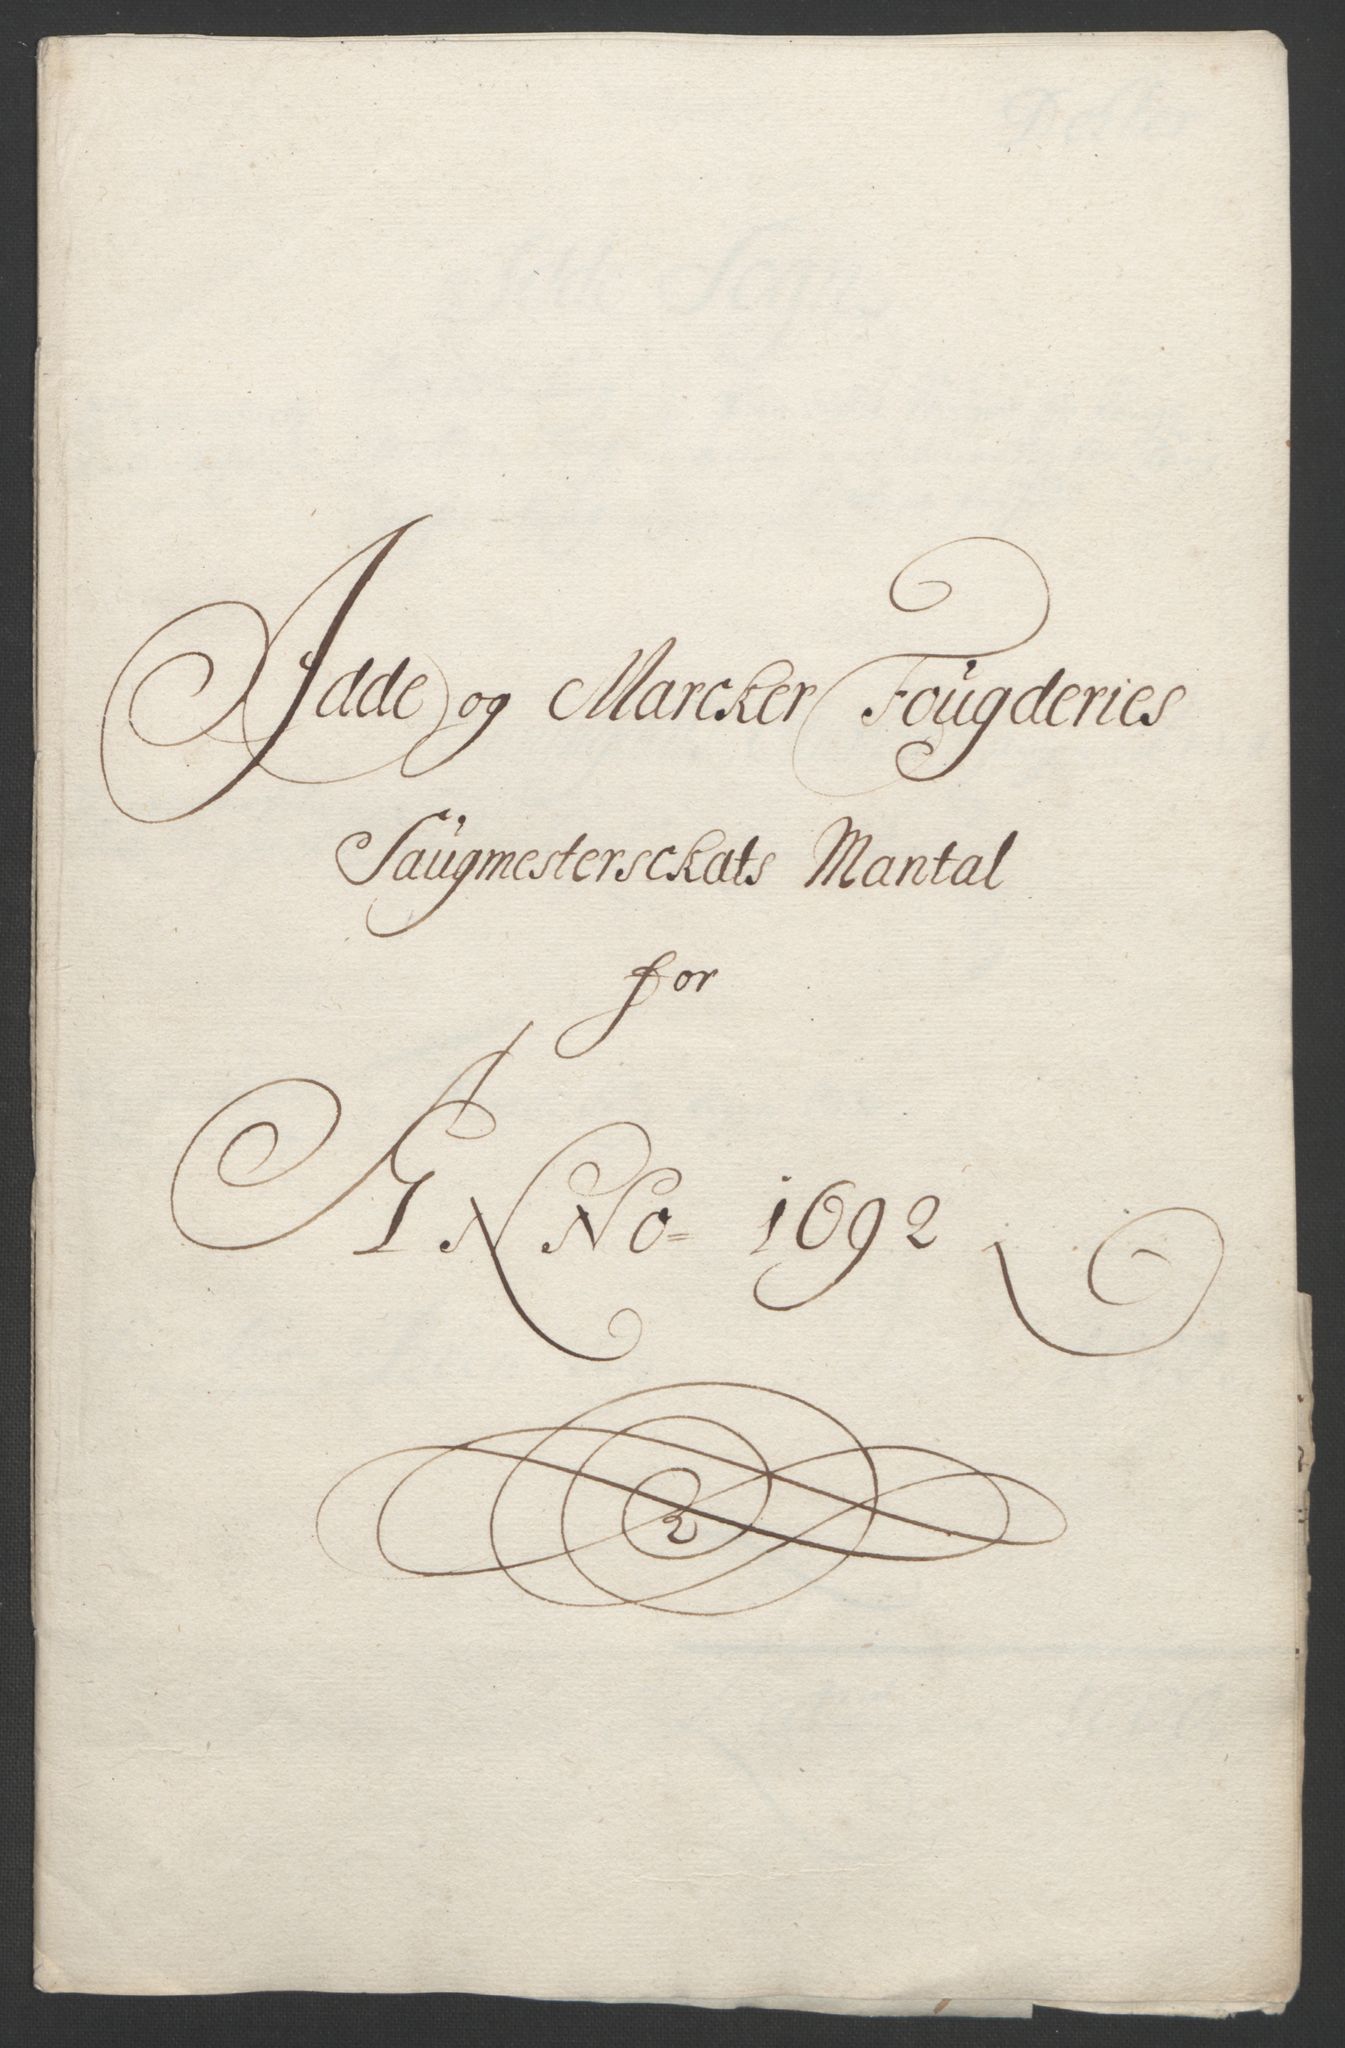 Idde og Marcker Foŭgderies
Saŭgmestersckats Mantal
for
ANNo= 1692